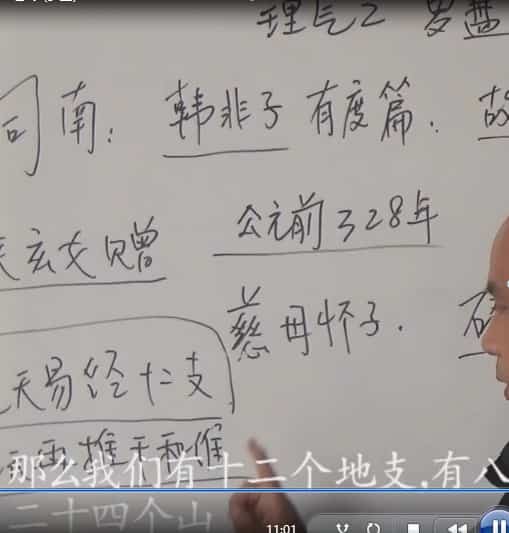 理气之 罗盘
司南: 韩非子 有度篇. 故
玄女赠 公元前328年
慈母怀子.
天易经十二支
那么我们有十二个地支,有八
二十四个山
11:01